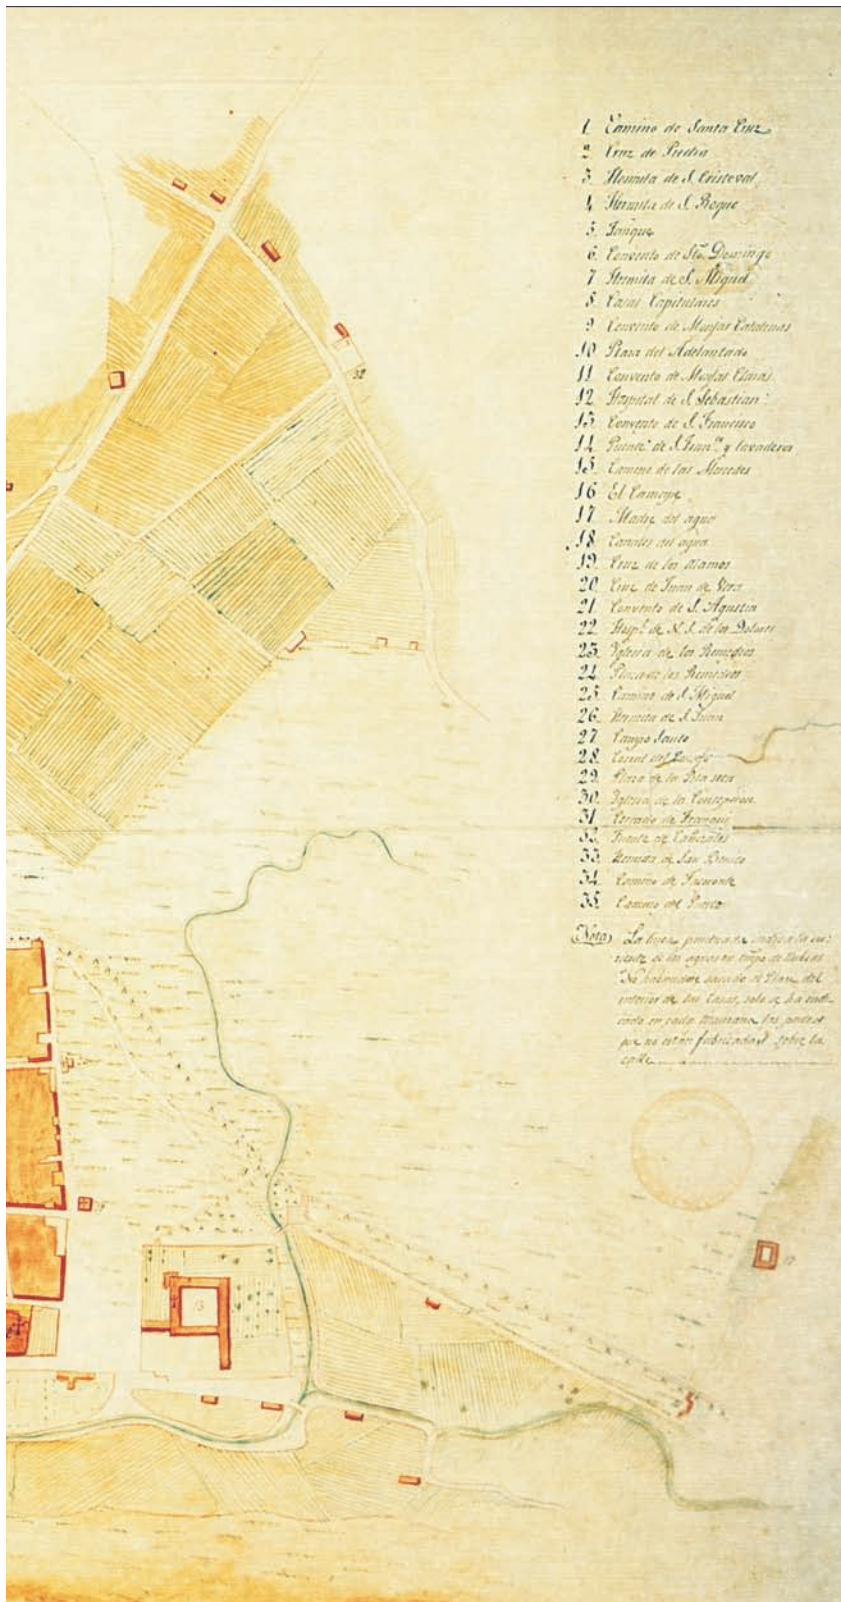 1 Camino de Santa Cruz
2 Cruz de Piedra
3 Hermita de S. Cristoval
4 Hermita de S. Roque
5 Tanque
6 Convento de Sto. Domingo
7 Hermita de S. Miguel
8 Casas Capitulares
9 Convento de Monjas Catalinas
10 Plaza del Adelantado
11 Convento de Monjas Claras
12 Hospital de S. Sebastian
13 Convento de S. Francisco
14 Puente de S. Fran.co y lavaderos
15 Camino de las Mercedes
16 El
17 Madre del agua
18 Canales del agua
19 Cruz de los Alamos
20 Cruz de Juan de Vera
21 Convento de S. Agustin
22 Hosp.l de N. S. de los Dolores
23 Iglesia de los Remedios
24 Plaza de los Remedios
25 Camino de S. Miguel
26 Hermita de S. Juan
27 Campo Santo
28 del
29 Plaza de la
30 Iglesia de la Concepcion
31 Cercado de
32 Fuente de Cañizales
33 Hermita de San Benito
34 Camino de Tacoronte
35 Camino del Puerto
Nota La linea punteada indica la cor
riente de las aguas en tiempo de llubias
No habiendose sacado el Plano del
interior de las Casas, solo se ha indi
cado en cada manzana las partes
que no están fabricadas sobre la
calle
32
13
17